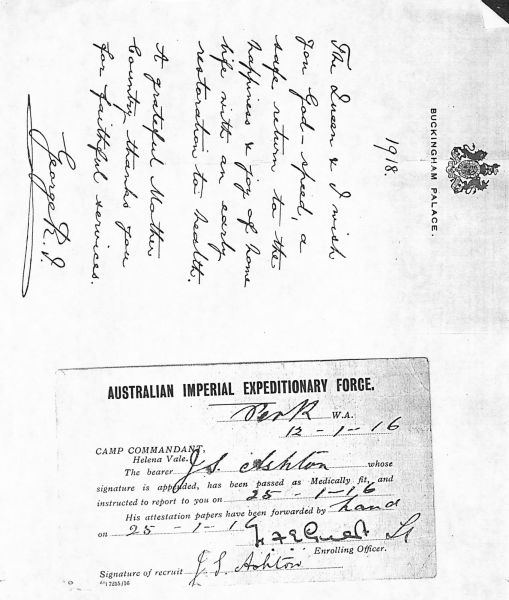 BUCKINGHAM PALACE.
1918.
The Queen & I wish
you God-speed, a
safe return to the
happiness & joy of home
life with an early
restoration to health.
A grateful Mother
Country thanks you
for faithful services.
George R.I.
AUSTRALIAN IMPERIAL EXPEDITIONARY FORCE.
Perth W.A.
12-1-16
CAMP COMMANDANT,
Helena Vale.
The bearer J.S. Ashton whose
signature is appended, has been passed as Medically fit, and
instructed to report to you on 25-1-16
His attestation papers have been forwarded by hand
on 25-1-16
Lt
Enrolling Officer.
Signature of recruit J.S. Ashton
7255/16